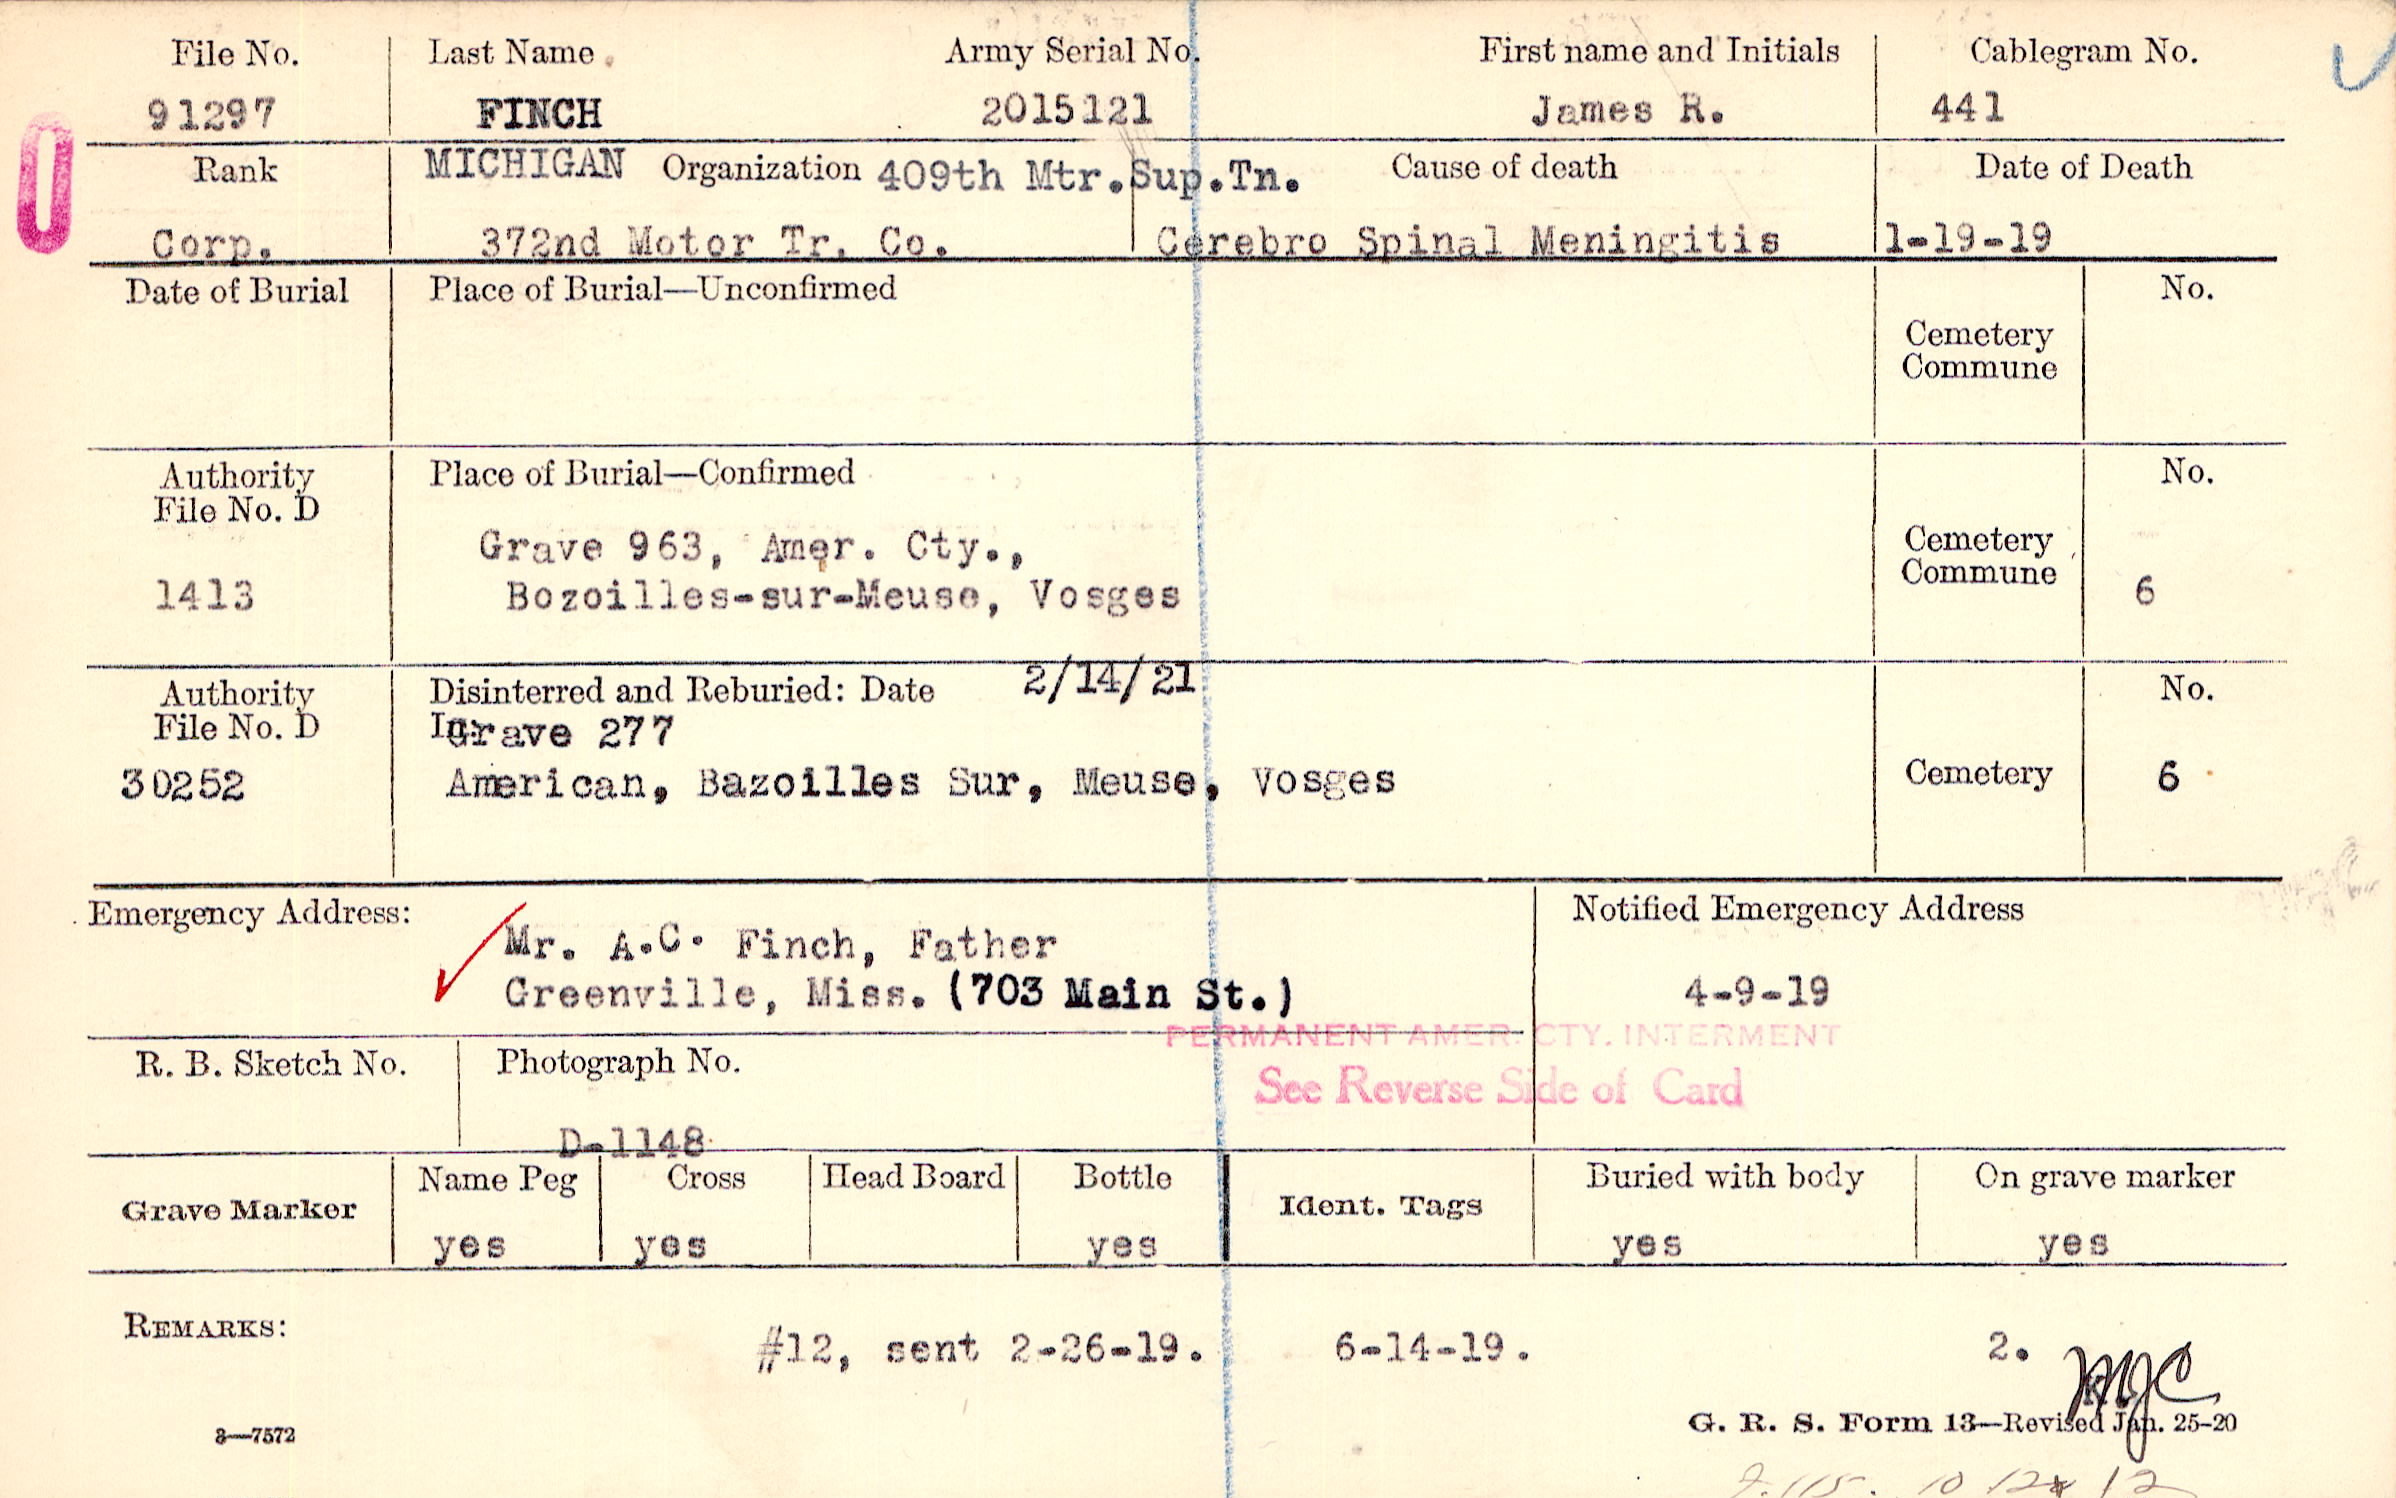 File No. Last Name Army Serial No. First name and Initials Cablegram No.
91297 FINCH 2015121 James R. 441
Rank MICHIGAN Organization 409th Mtr.Sup.Tn. Cause of death Date of Death
Corp. 372nd Motor Tr. Co. Cerebro Spinal Meningitis 1-19-19
Date of Burial Place of Burial—Unconfirmed No.
Cemetery
Commune
Authority Place of Burial—Confirmed No.
File No. D
Grave 963, Amer. Cty., Cemetery
1413 Bozoilles-sur-Meuse, Vosges Commune 6
Authority Disinterred and Reburied: Date 2/14/21 No.
File No. D In: Grave 277
30252 American, Bazoilles Sur, Meuse, Vosges Cemetery 6
Emergency Address: Notified Emergency Address
Mr. A.C. Finch, Father
Greenville, Miss. (703 Main St.) 4-9-19
PERMANENT AMER. CTY. INTERMENT
R. B. Sketch No. Photograph No. See Reverse Side of Card
D-1148
Grave Marker Name Peg Cross Head Board Bottle Ident. Tags Buried with body On grave marker
yes yes yes yes yes
REMARKS: #12, sent 2-26-19. 6-14-19. 2.
3—7572 G. R. S. Form 13—Revised Jan. 25-20